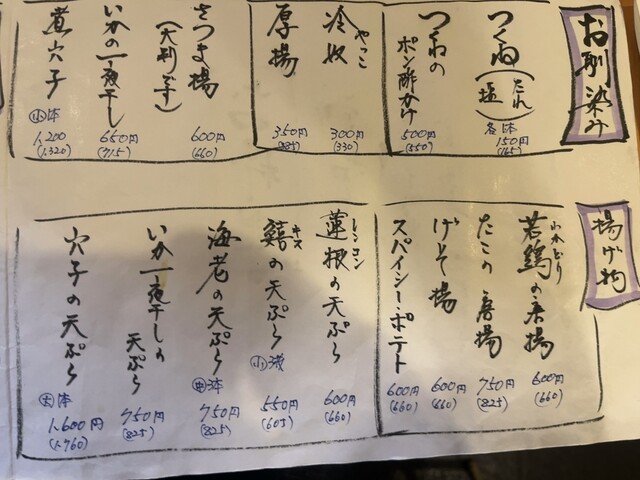 お馴染み
つくね(たれ 塩)
各一本
150円
(165)
つくねの
ポン酢かけ
500円
(550)
やっこ
冷奴
300円
(330)
厚揚
350円
(385)
さつま揚
(大判です)
600円
(660)
いかの一夜干し
650円
(715)
煮穴子
小一本
1,200
(1,320)
揚げ物
わかどり
若鶏の唐揚
600円
(660)
たこの唐揚
750円
(825)
げそ揚
600円
(660)
スパイシーポテト
600円
(660)
レンコン
蓮根の天ぷら
600円
(660)
キス
鱚の天ぷら
550円
(605)
海老の天ぷら
750円
(825)
いか一夜干しの
天ぷら
750円
(825)
穴子の天ぷら
大一本
1,600円
(1,760)